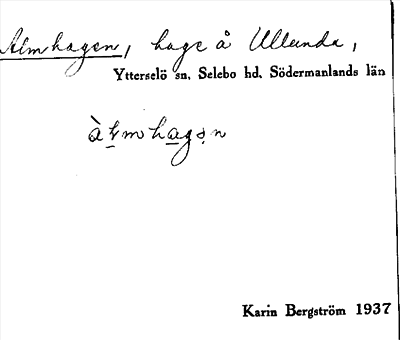 Almhagen, hage å Ullunda,
Ytterselö sn, Selebo hd, Södermanlands län
àl̠mha̠gən
Karin Bergström 1937